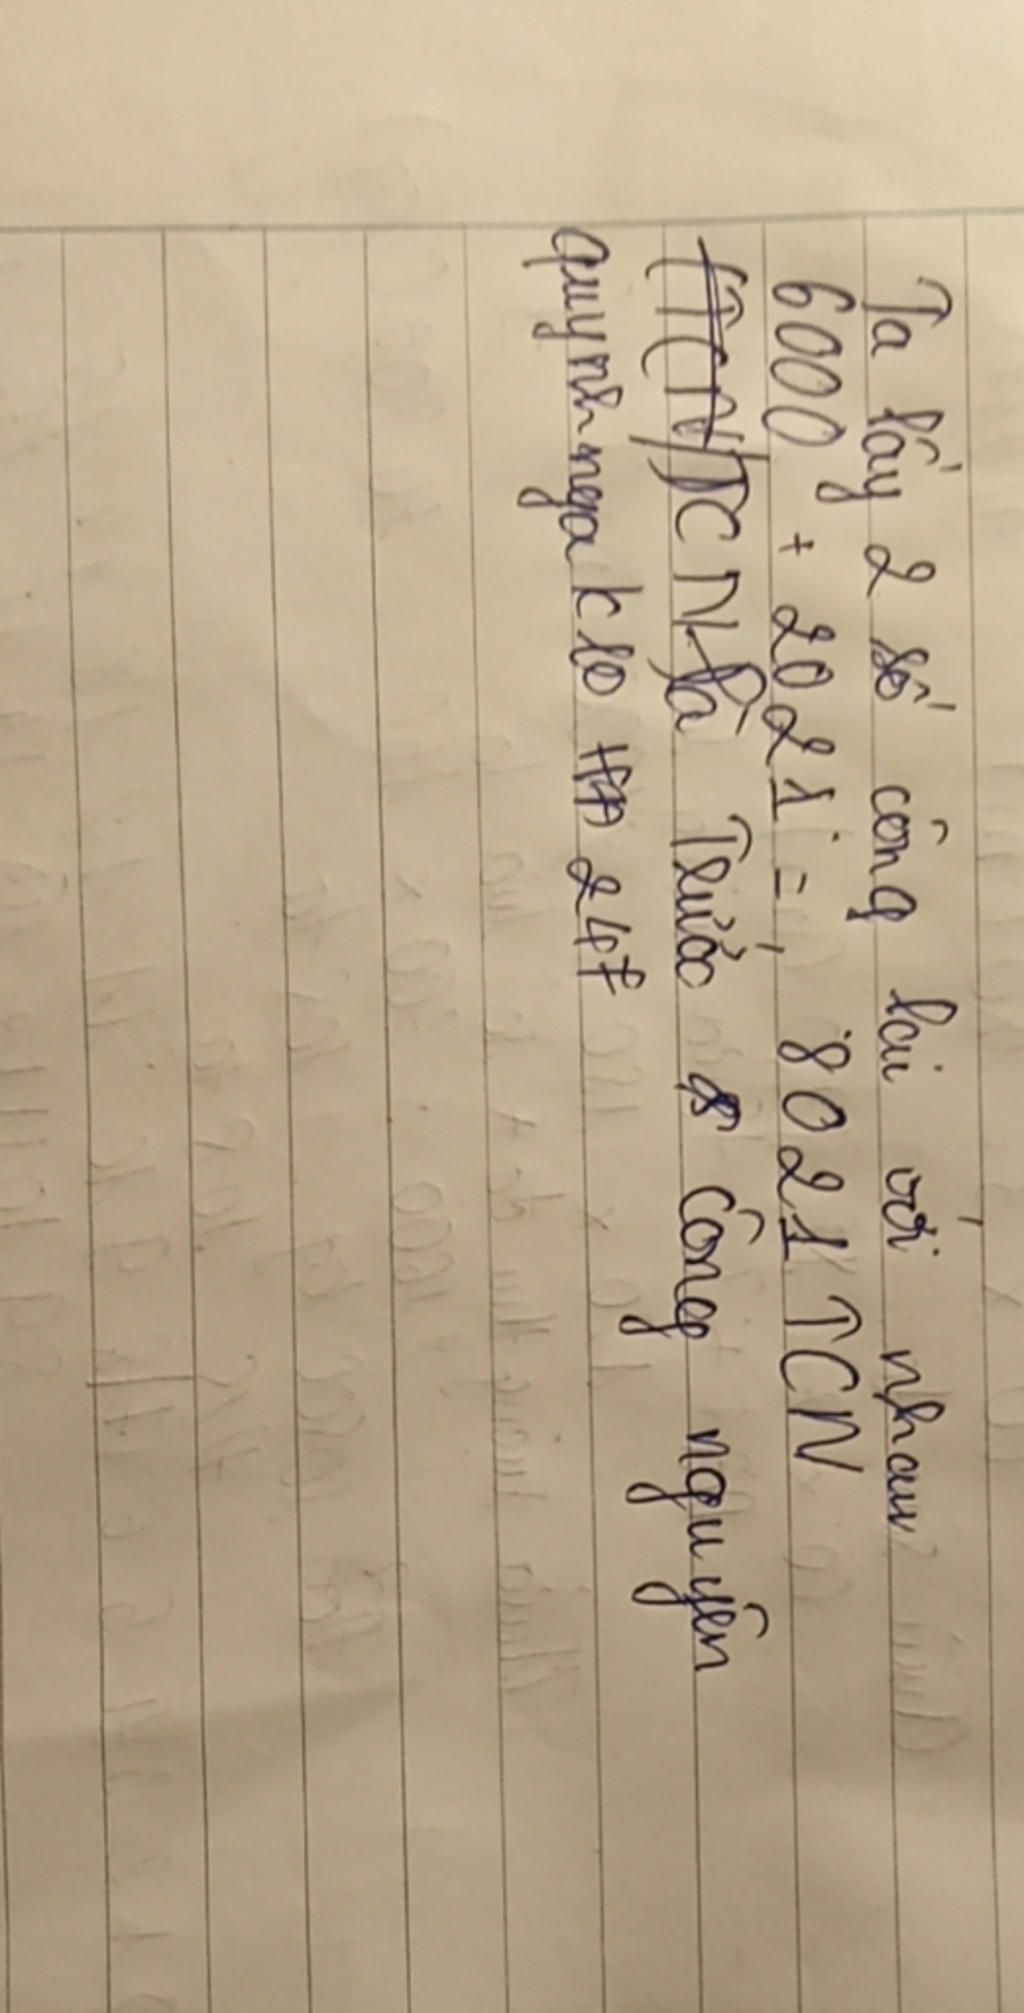 Ta lấy 2 số cộng lại với nhau
6000 + 2021 = 8021 TCN
(TCN) TCN là Trước Công nguyên
quynhnga k10 247